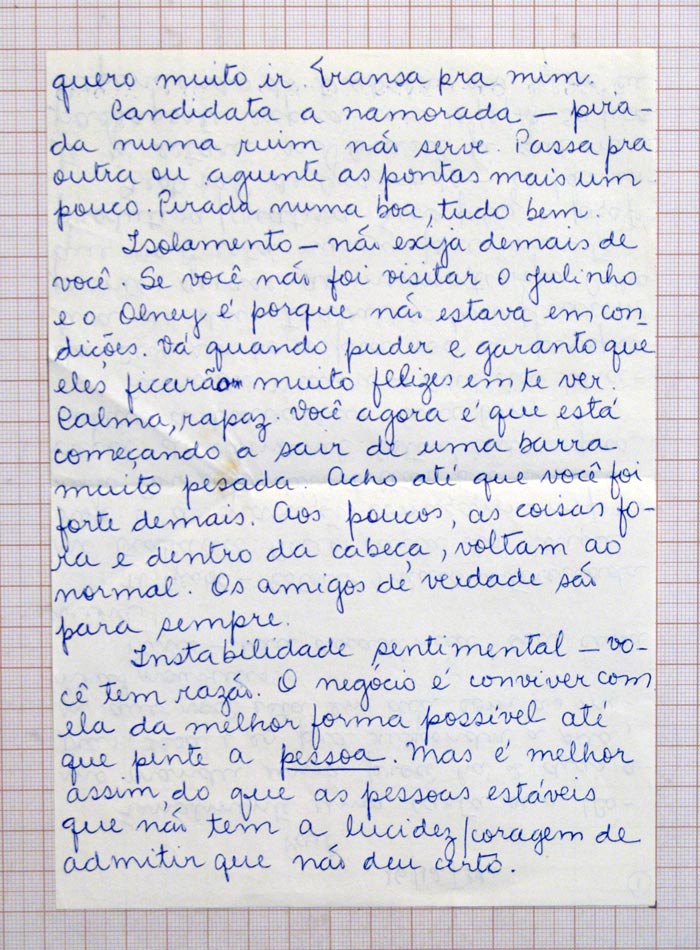 quero muito ir. Transa pra mim.
Candidata a namorada – pira-
da numa ruim não serve. Passa pra
outra ou aguente as pontas mais um
pouco. Pirada numa boa, tudo bem.
Isolamento – não exija demais de
você. Se você não foi visitar o Julinho
e o Olney é porque não estava em con-
dições. Vá quando puder e garanto que
eles ficarão muito felizes em te ver.
Calma, rapaz. Você agora é que está
começando a sair de uma barra
muito pesada. Acho até que você foi
forte demais. Aos poucos, as coisas fo-
ra e dentro da cabeça, voltam ao
normal. Os amigos de verdade são
para sempre.
Instabilidade sentimental – vo-
cê tem razão. O negócio é conviver com
ela da melhor forma possível até
que pinte a pessoa. Mas é melhor
assim do que as pessoas estáveis
que não tem a lucidez/coragem de
admitir que não deu certo.